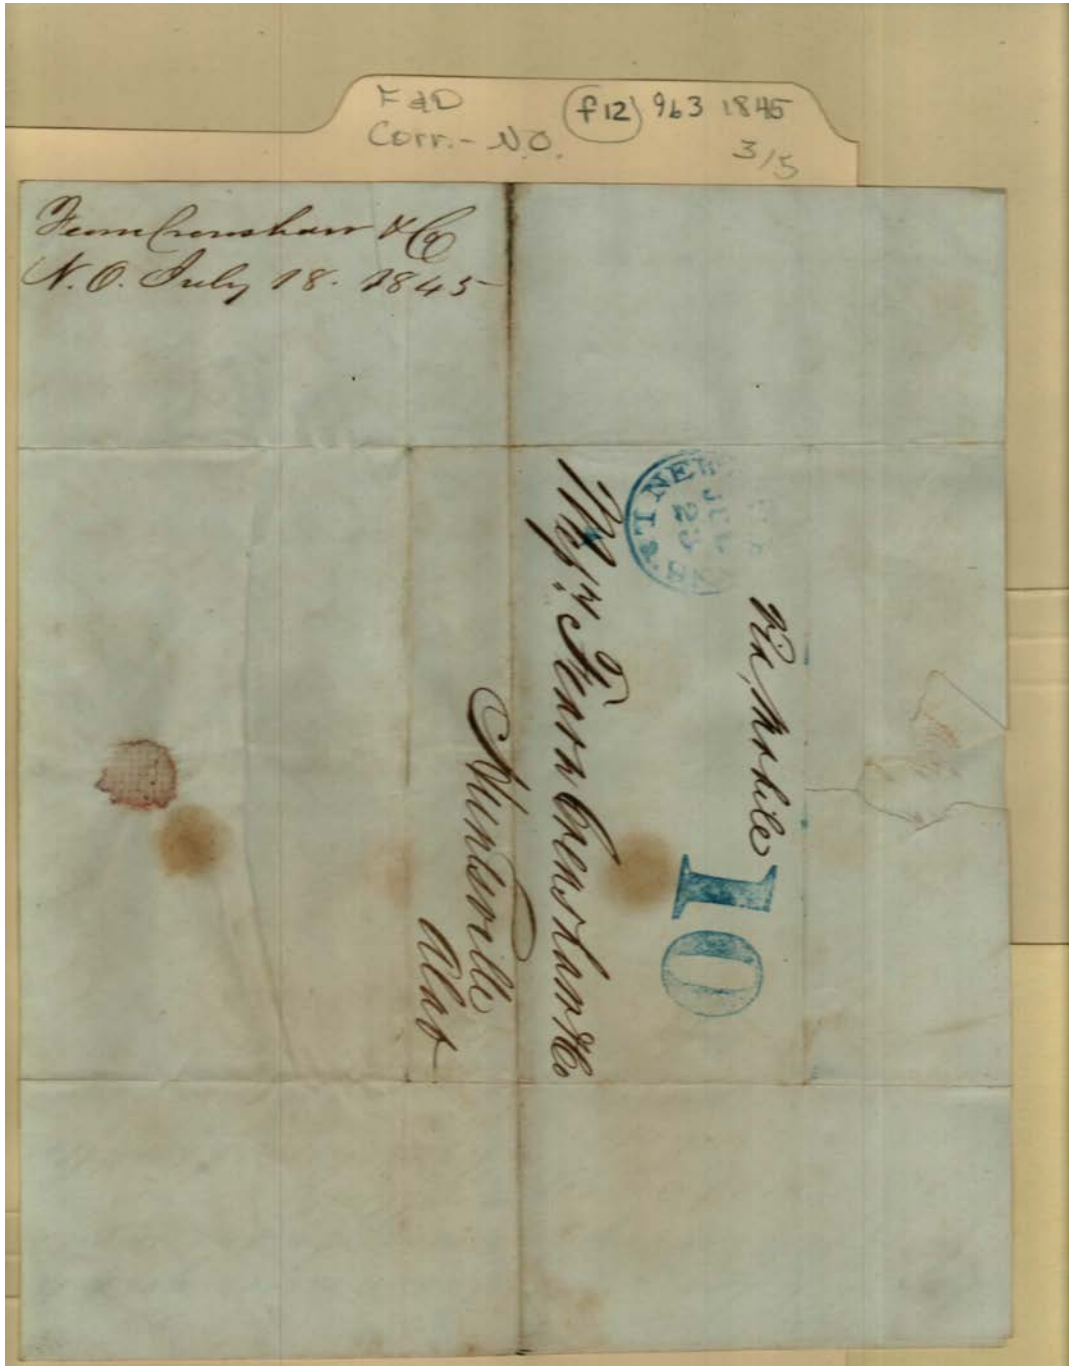 F&D
Corr.- N.O.
f12 963 1845
3/5
Fearn Crenshaw & Co
N.O. July 18. 1845
NEW
JUL
Via, Mobile
10
Fearn Crenshaw & Co
Huntsville
Alab